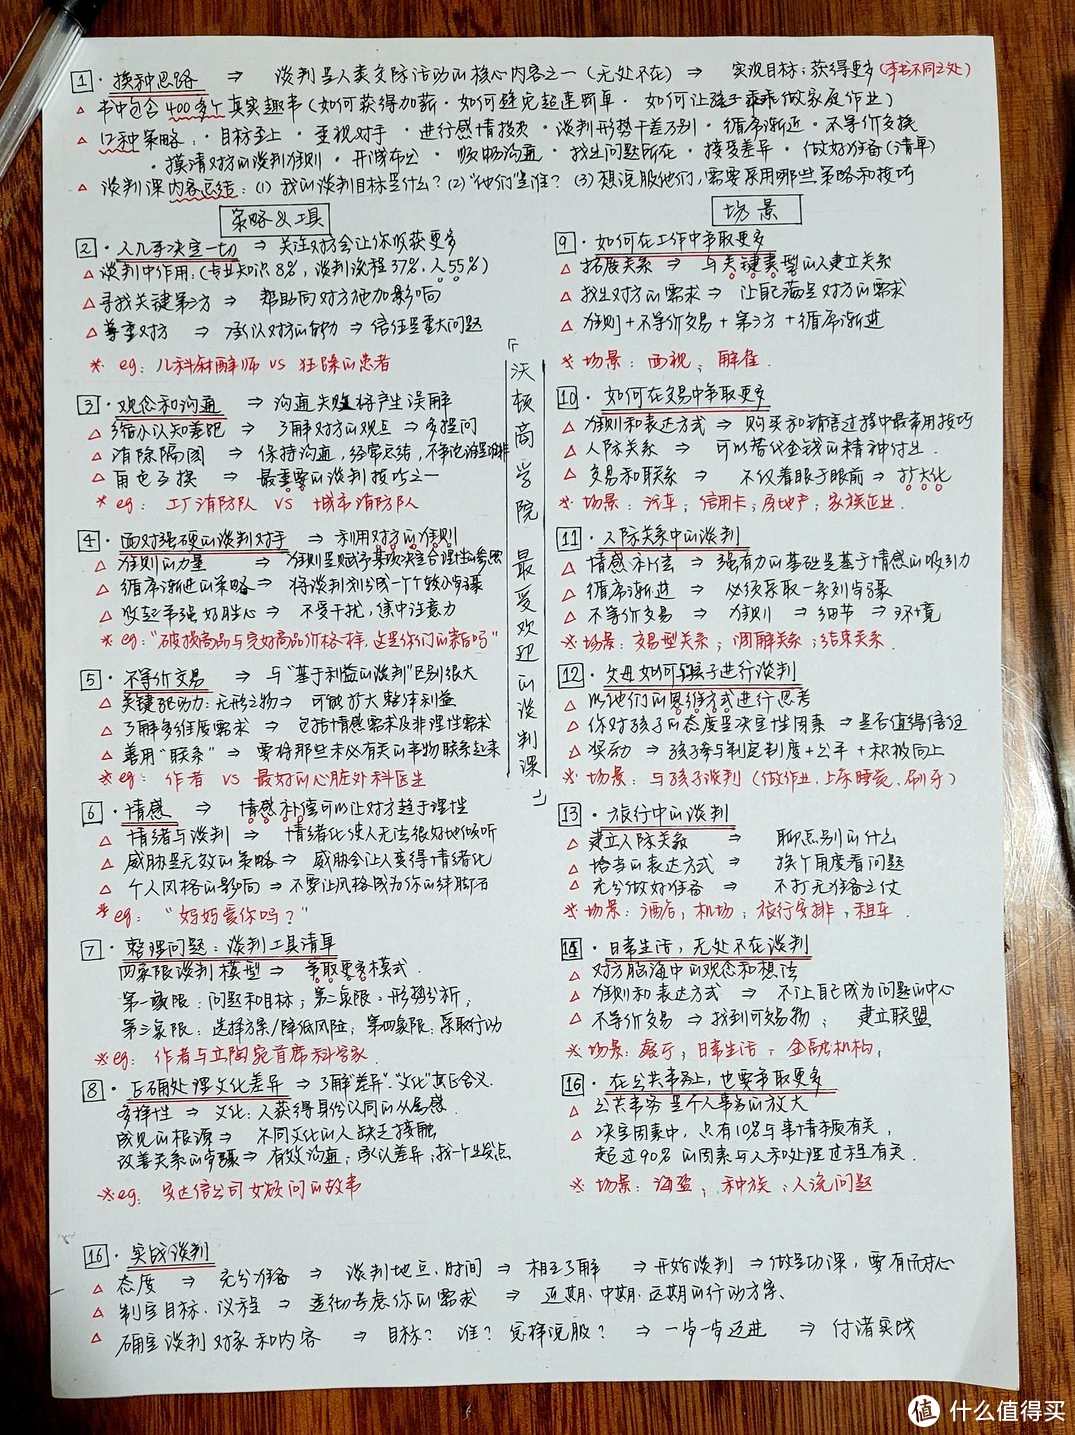 1 · 换种思路 ⇒ 谈判是人类交际活动的核心内容之一（无处不在）⇒ 实现目标；获得更多（本书不同之处）
△ 书中包含400多个真实趣事（如何获得加薪 · 如何避免超速罚单 · 如何让孩子乖乖做家庭作业）
△ 12种策略：· 目标至上 · 重视对手 · 进行感情投资 · 谈判形势千差万别 · 循序渐进 · 不等价交换
· 摸清对方的谈判准则 · 开诚布公 · 顺畅沟通 · 找出问题所在 · 接受差异 · 做好准备（清单）
△ 谈判课内容总结：(1) 我的谈判目标是什么？(2)“他们”是谁？(3) 想说服他们，需要采用哪些策略和技巧
策略&工具
2 · 人几乎决定一切 ⇒ 关注对方会让你收获更多
△ 谈判中作用：(专业知识8%，谈判流程37%，人55%)
△ 寻找关键第三方 ⇒ 帮助向对方施加影响
△ 尊重对方 ⇒ 承认对方的能力 ⇒ 信任是重大问题
* eg：儿科麻醉师 VS 狂躁的患者
3 · 观念和沟通 ⇒ 沟通失败将产生误解
△ 缩小认知差距 ⇒ 了解对方的观点 ⇒ 多提问
△ 消除隔阂 ⇒ 保持沟通，经常总结，不争论谁是谁非
△ 角色互换 ⇒ 最重要的谈判技巧之一
* eg：工厂消防队 VS 城市消防队
4 · 面对强硬的谈判对手 ⇒ 利用对方的准则
△ 准则的力量 ⇒ 准则是赋予某项决定合理性的参照
△ 循序渐进的策略 ⇒ 将谈判划分成一个个较小步骤
△ 收起争强好胜心 ⇒ 不受干扰，集中注意力
* eg：“破损商品与完好商品价格一样，这里你们的来的吗”
5 · 不等价交易 ⇒ 与“基于利益的谈判”区别很大
△ 关键驱动力：无形之物 ⇒ 可能扩大整体利益
△ 了解多维度需求 ⇒ 包括情感需求及非理性需求
△ 善用“联系” ⇒ 要将那些未必有关的事物联系起来
* eg：作者 VS 最好的心脏外科医生
6 · 情感 ⇒ 情感补偿可以让对方趋于理性
△ 情绪与谈判 ⇒ 情绪化使人无法很好地倾听
△ 威胁是无效的策略 ⇒ 威胁会让人变得情绪化
△ 个人风格的影响 ⇒ 不要让风格成为你的绊脚石
* eg：“妈妈爱你吗？”
7 · 整理问题：谈判工具清单
四象限谈判模型 ⇒ 争取更多模式．
第一象限：问题和目标；第二象限：形势分析；
第三象限：选择方案/降低风险；第四象限：采取行动
* eg：作者与立陶宛首席科学家．
8 · 正确处理文化差异 ⇒ 了解“差异”·“文化”真正含义．
多样性 ⇒ 文化：人获得身份认同的从属感．
成见的根源 ⇒ 不同文化的人缺乏接触
改善关系的步骤 ⇒ 有效沟通；承认差异；找一个出发点
* eg：安达信公司女顾问的故事
「沃顿商学院最受欢迎的谈判课」
场景
9 · 如何在工作中争取更多
△ 拓展关系 ⇒ 与关键类型的人建立关系
△ 找出对方的需求 ⇒ 让自己满足对方的需求
△ 准则+不等价交易+第三方+循序渐进
* 场景：面视；解雇．
10 · 如何在交易中争取更多
△ 准则和表达方式 ⇒ 购买和销售过程中最常用技巧
△ 人际关系 ⇒ 可以替代金钱的精神付出．
△ 交易和联系 ⇒ 不仅着眼于眼前 ⇒ 扩大化
* 场景：汽车；信用卡；房地产；家族企业．
11 · 人际关系中的谈判
△ 情感补偿 ⇒ 强有力的基础是基于情感的吸引力
△ 循序渐进 ⇒ 必须采取一系列步骤
△ 不等价交易 ⇒ 准则 ⇒ 细节 ⇒ 环境
* 场景：交易型关系；调解关系；结束关系．
12 · 父母如何与孩子进行谈判
△ 以他们的思维方式进行思考
△ 你对孩子的态度是决定性因素 ⇒ 是否值得信任
△ 奖励 ⇒ 孩子参与制定制度+公平+积极向上
* 场景：与孩子谈判（做作业、上床睡觉、刷牙）
13 · 旅行中的谈判
△ 建立人际关系 ⇒ 聊点别的什么
△ 恰当的表达方式 ⇒ 换个角度看问题
△ 充分做好准备 ⇒ 不打无准备之仗
* 场景：酒店；机场；旅行安排；租车．
14 · 日常生活，无处不在谈判
△ 对方脑海中的观念和想法
△ 准则和表达方式 ⇒ 不让自己成为问题的中心
△ 不等价交易 ⇒ 找到可交易物； 建立联盟
* 场景：餐厅；日常生活；金融机构；
15 · 在公共事务上，也要争取更多
△ 公共事务是个人事务的放大
△ 决定因素中，只有10%与事情本质有关，
超过90%的因素与人和处理过程有关．
* 场景：海盗；种族；人流问题
16 · 实战谈判
△ 态度 ⇒ 充分准备 ⇒ 谈判地点、时间 ⇒ 相互了解 ⇒ 开始谈判 ⇒ 做足功课，要有耐心
△ 制定目标、议程 ⇒ 透彻考虑你的需求 ⇒ 近期、中期、远期的行动方案、
△ 确定谈判对象和内容 ⇒ 目标？ 谁？ 怎样说服？ ⇒ 一步一步迈进 ⇒ 付诸实践
值 什么值得买